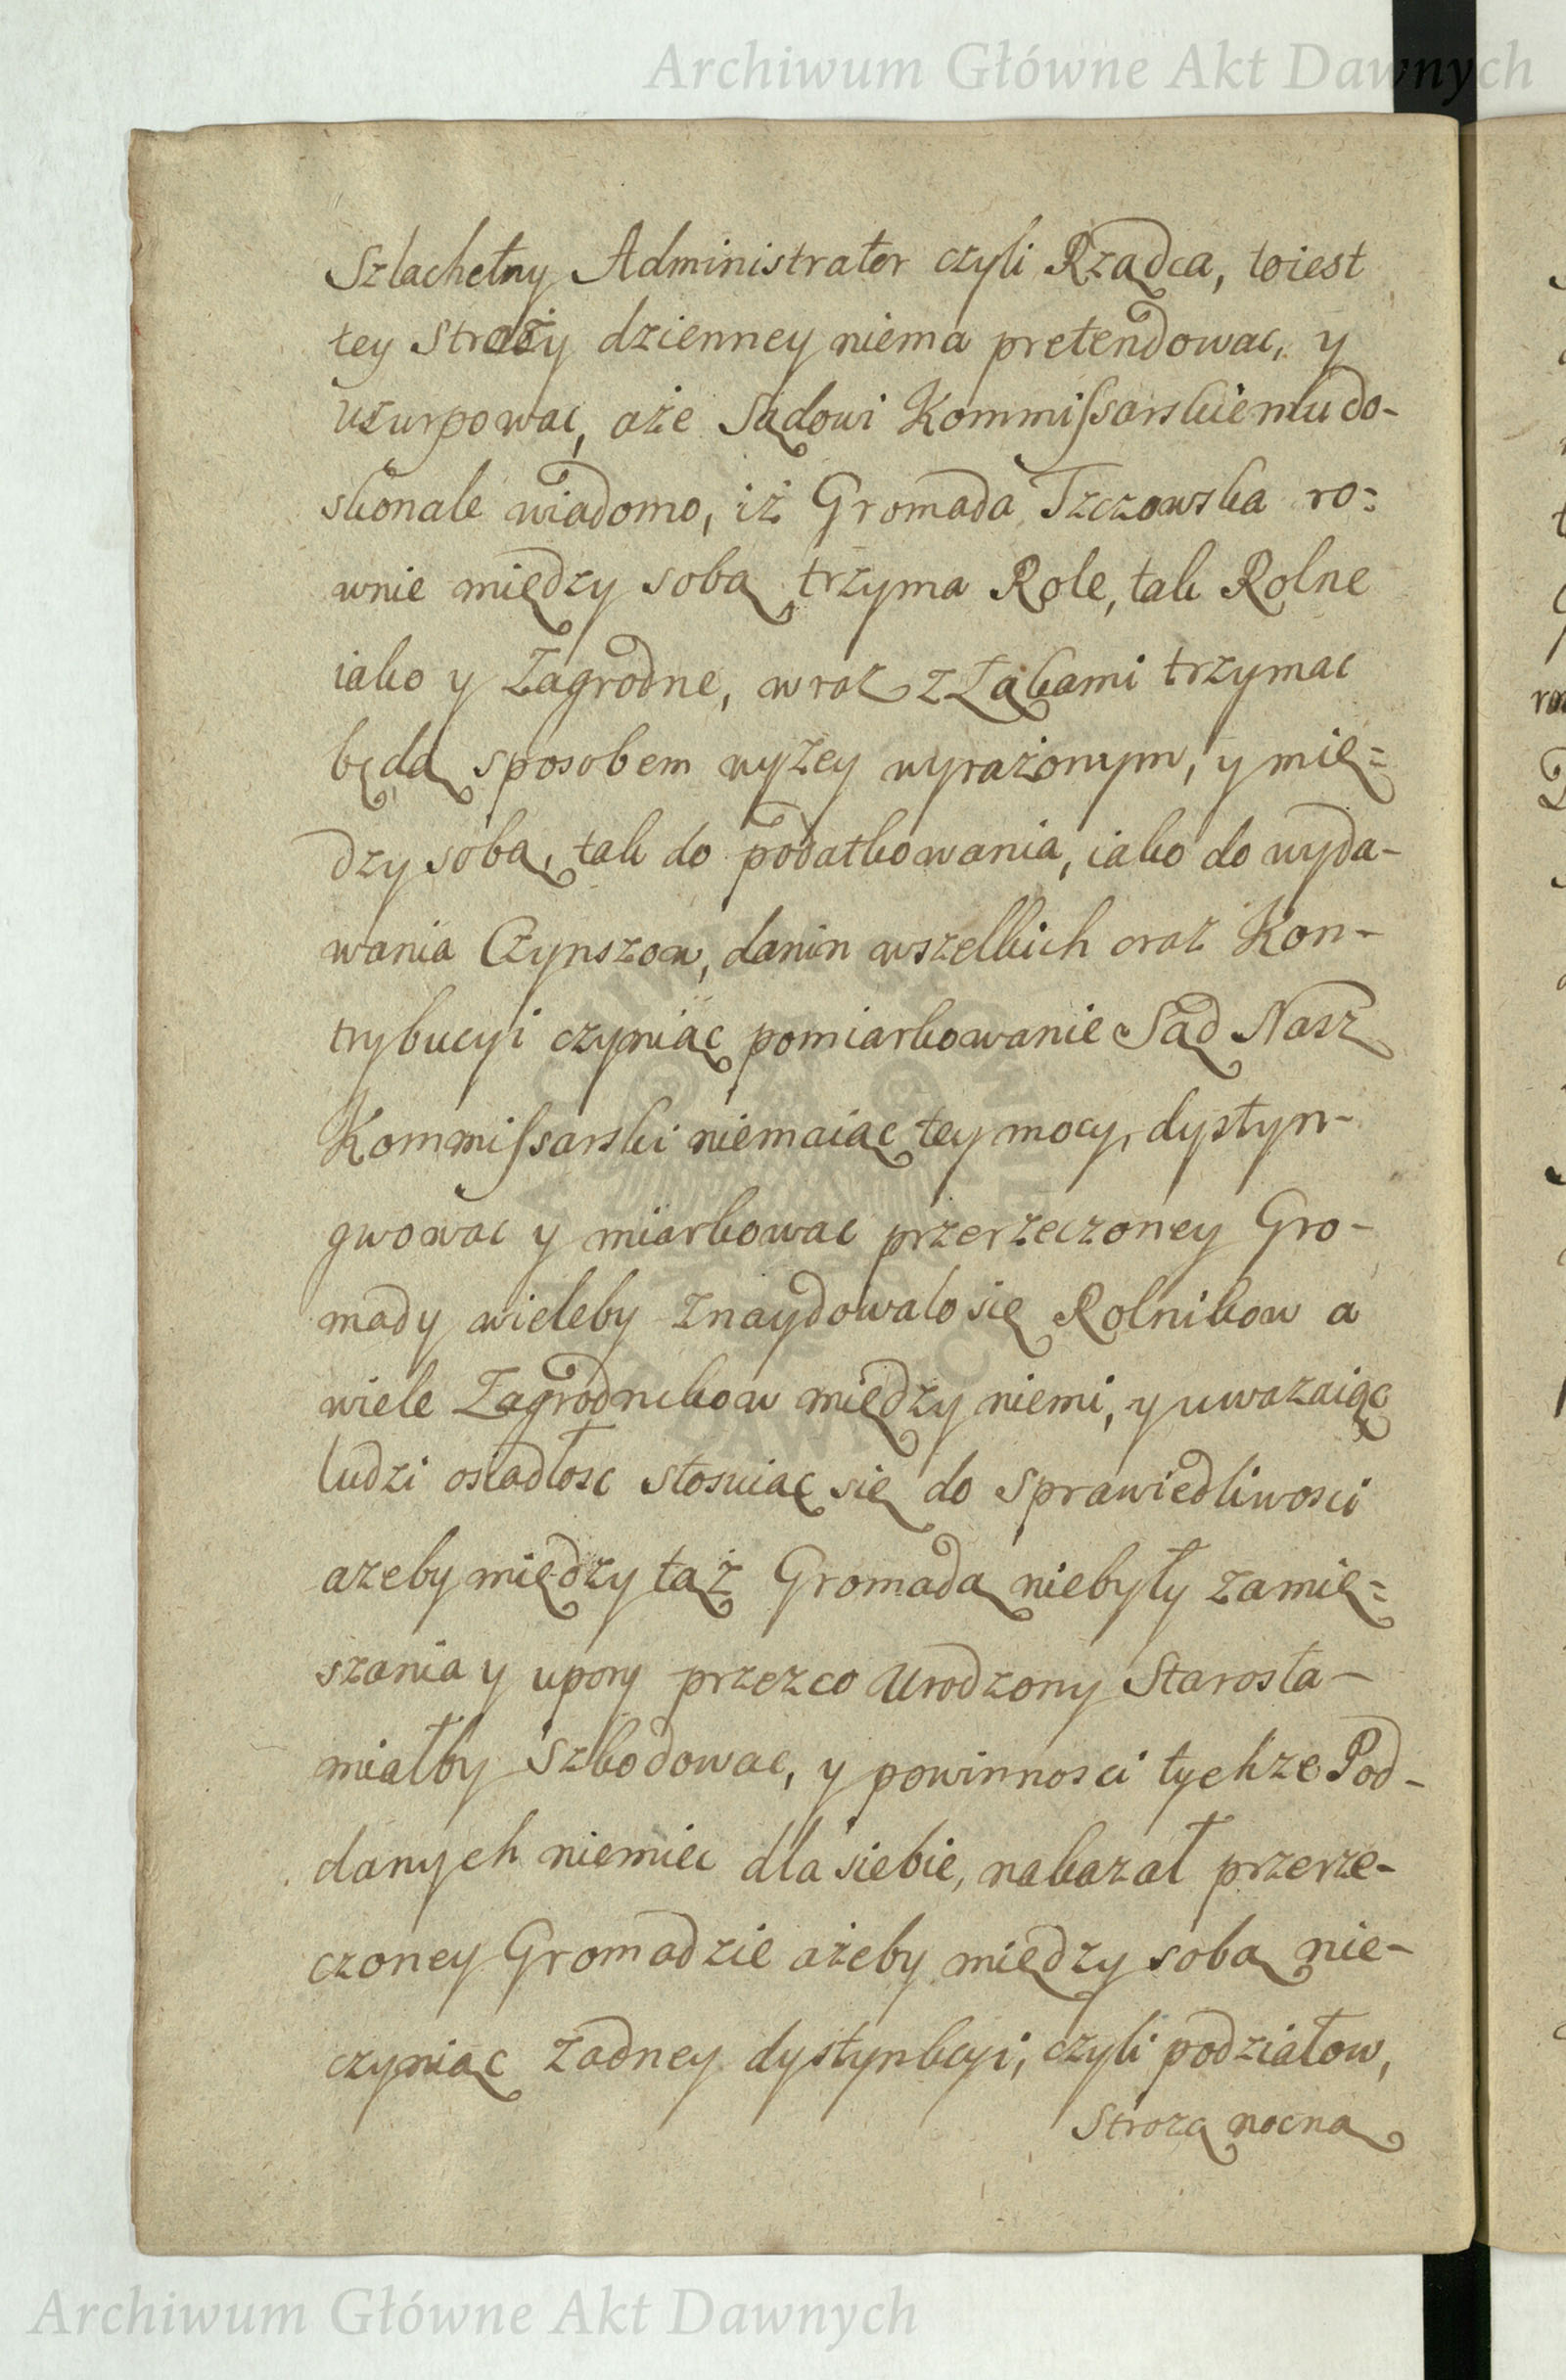 Archiwum Główne Akt Dawnych
Szlachetny Administrator czyli Rządca, toiest
tey Straży dzienney niema pretendowac, y
uzurpowac, aże Sądowi Kommiſsarskiemu do-
skonale wiadomo, iż Gromada Tzczowska ro=
wnie między sobą trzyma Role, tak Rolne
iako y Zagrodne, wraz z Łąkami trzymac
będą sposobem wyżey wyrażonym, y mię=
dzy sobą, tak do podatkowania, iako do wyda-
wania Czynszow, danin wszelkich oraz Kon-
trybucyi czyniąc pomiarkowanie Sąd Nasz
Kommiſsarski niemaiąc tey mocy, dystyn-
gwowac y miarkowac przerzeczoney Gro-
mady wieleby znaydowalo się Rolnikow a
wiele Zagrodnikow między niemi, y uwazaiąc
ludzi osiadłosc stosuiąc się do sprawiedliwosci
azeby między tąż Gromadą niebyły zamię=
szania y upory przezco Urodzony Starosta-
miałby Szkodowac, y powinnosci tychze Pod-
danych niemiec dla siebie, nakazał przerze-
czoney Gromadzie ażeby między sobą nie-
czyniąc żadney dystynkcyi, czyli podziałow,
Strozą nocną
Archiwum Główne Akt Dawnych